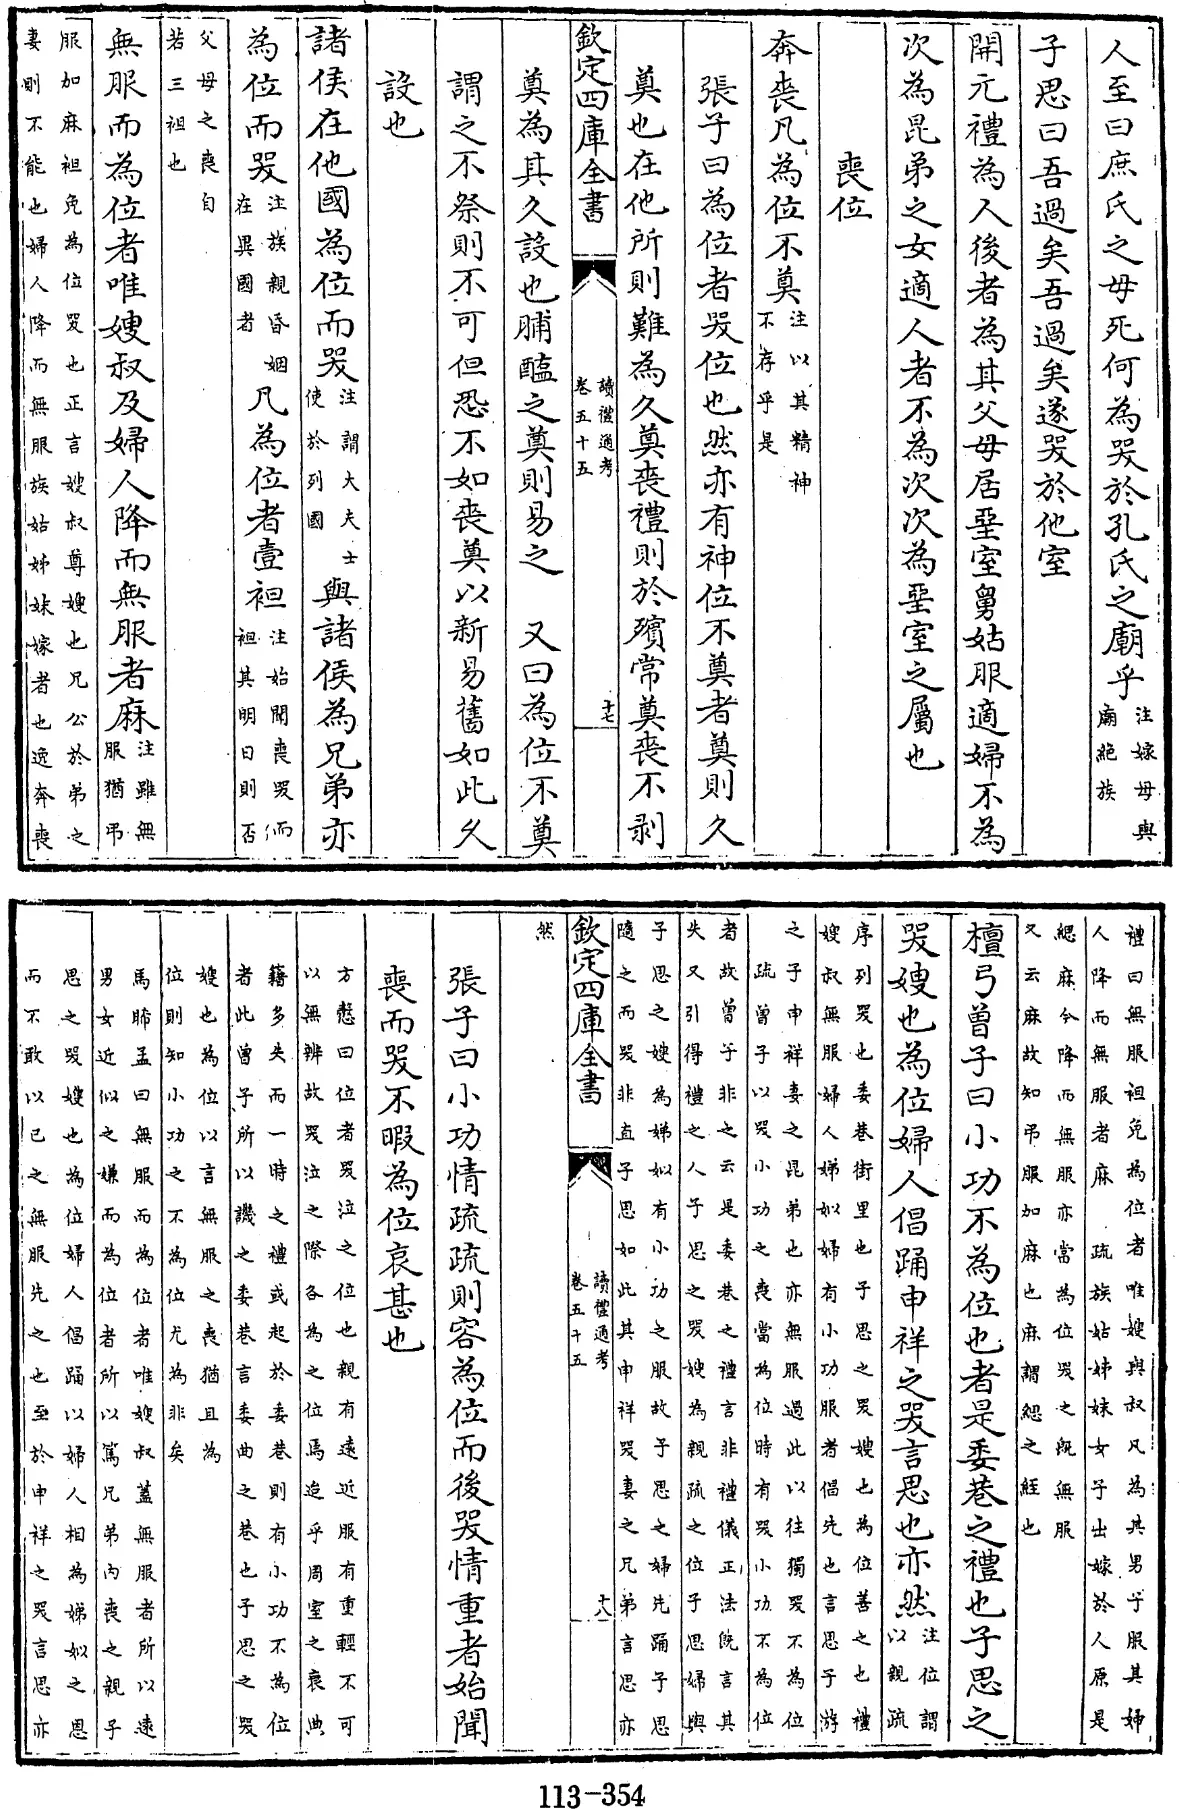 人至曰庶氏之母死何為哭於孔氏之廟乎注嫁母與廟絶族
子思曰吾過矣吾過矣遂哭於他室
開元禮為人後者為其父母居堊室舅姑服適婦不為
次為昆弟之女適人者不為次次為堊室之屬也
喪位
奔喪凡為位不奠注以其精神不存乎是
張子曰為位者哭位也然亦有神位不奠者奠則久
奠也在他所則難為久奠喪禮則於殯常奠喪不剥
欽定四庫全書 讀禮通考卷五十五 十七
奠為其久設也脯醢之奠則易之 又曰為位不奠
謂之不祭則不可但恐不如喪奠以新易舊如此久
設也
諸侯在他國為位而哭注謂大夫士使於列國與諸侯為兄弟亦
為位而哭注族親昏姻在異國者凡為位者壹袒注始聞喪哭而袒其明日則否
父母之喪自若三袒也
無服而為位者唯嫂叔及婦人降而無服者麻注雖無服猶弔
服加麻袒免為位哭也正言嫂叔尊嫂也兄公於弟之
妻則不能也婦人降而無服族姑姊妹嫁者也逸奔喪
禮曰無服袒免為位者唯嫂與叔凡為其男子服其婦
人降而無服者麻 疏族姑姊妹女子出嫁於人原是
緦麻今降而無服亦當為位哭之既無服
又云麻故知弔服加麻也麻謂緦之絰也
檀弓曾子曰小功不為位也者是委巷之禮也子思之
哭嫂也為位婦人倡踊申祥之哭言思也亦然注位謂以親疏
序列哭也委巷街里也子思之哭嫂也為位善之也禮
嫂叔無服婦人娣姒婦有小功服者倡先也言思子游
之子申祥妻之昆弟也亦無服過此以往獨哭不為位
疏曾子以哭小功之喪當為位時有哭小功不為位
者故曾子非之云是委巷之禮言非禮儀正法既言其
失又引得禮之人子思之哭嫂為親疏之位子思婦與
子思之嫂為娣姒有小功之服故子思之婦先踊子思
隨之而哭非直子思如此其申祥哭妻之兄弟言思亦
欽定四庫全書 讀禮通考卷五十五 十八
然
張子曰小功情疏疏則容為位而後哭情重者始聞
喪而哭不暇為位哀甚也
方慤曰位者哭泣之位也親有遠近服有重輕不可
以無辨故哭泣之際各為之位焉造乎周室之衰典
籍多失而一時之禮或起於委巷則有小功不為位
者此曾子所以譏之委巷言委曲之巷也子思之哭
嫂也為位以言無服之喪猶且為
位則知小功之不為位尤為非矣
馬晞孟曰無服而為位者唯嫂叔蓋無服者所以遠
男女近似之嫌而為位者所以篤兄弟内喪之親子
思之哭嫂也為位婦人倡踊以婦人相為娣姒之恩
而不敢以已之無服先之也至於申祥之哭言思亦
113-354